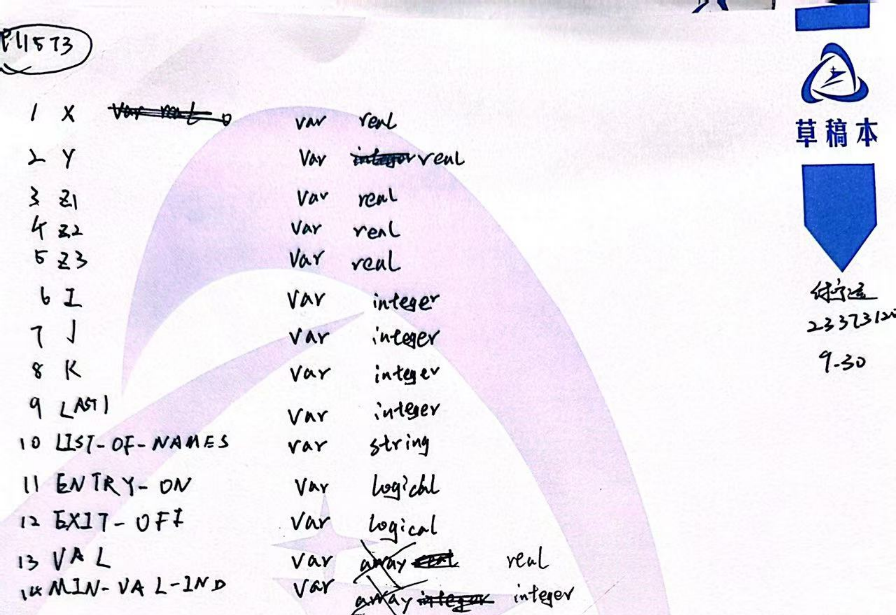 P41573
1 X var real
2 Y Var real
3 Z1 Var real
4 Z2 Var real
5 Z3 Var real
6 I Var integer
7 J Var integer
8 K Var integer
9 LAST1 Var integer
10 LIST-OF-NAMES var string
11 ENTRY-ON Var logical
12 EXIT-OFF Var logical
13 VAL Var array real
14 MIN-VAL-IND Var array integer integer
草稿本
9-30